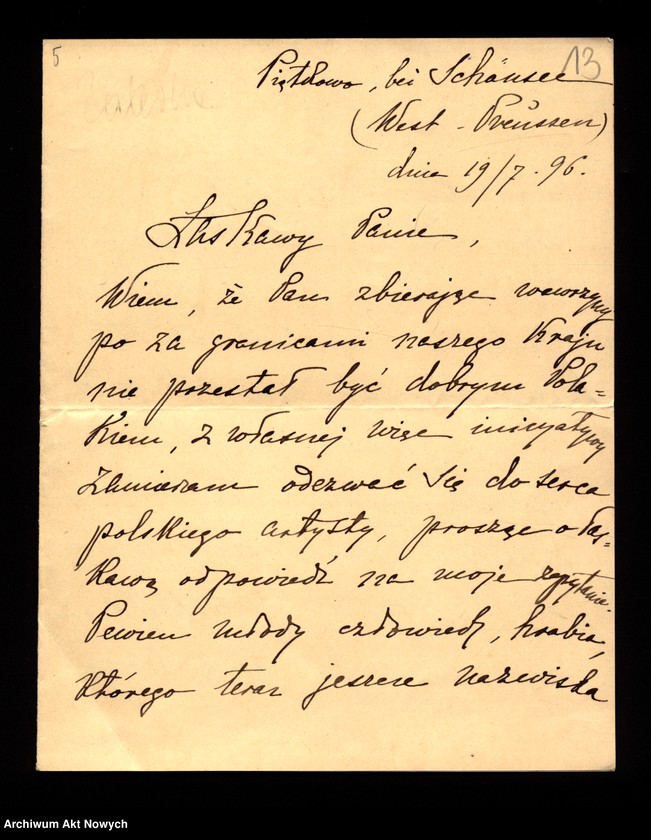 5
13
Piątkowo, bei Schönsee
(West-Preussen)
dnia 19/7. 96.
Łaskawy Panie,
Wiem, że Pan zbierając wawrzyny
po za granicami naszego Kraju
nie przestał być dobrym Pola-
kiem, z własnej więc inicyatywy
zamierzam odezwać się do serca
polskiego artysty, prosząc o łas-
kawą odpowiedź na moje zapytanie.
Pewien młody człowiek, hrabia,
którego teraz jeszcze nazwiska
Archiwum Akt Nowych